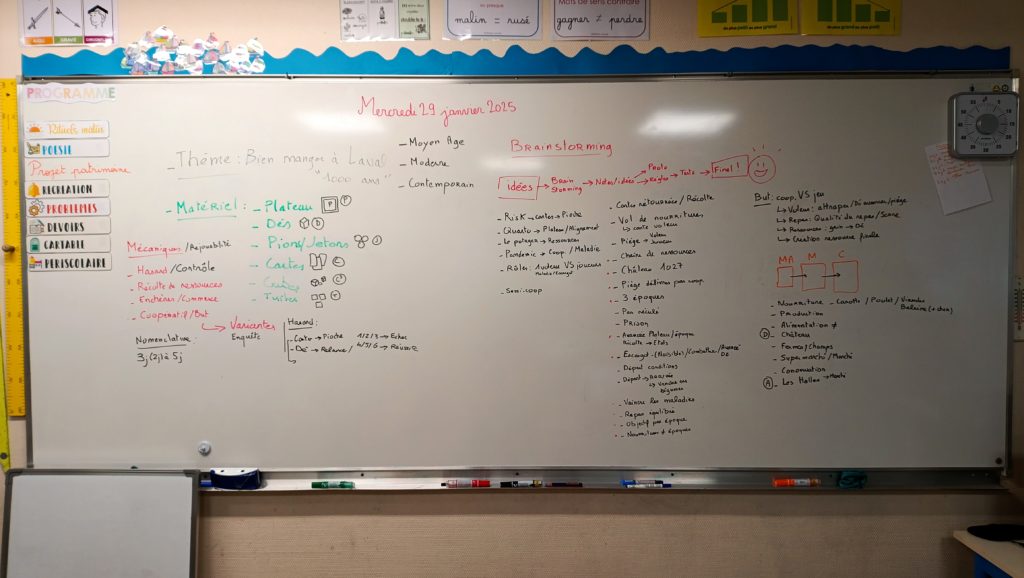 malin = rusé
Mots de sens contraire
gagner ≠ perdre
PROGRAMME
Rituels matin
POESIE
Projet patrimoine
RECREATION
PROBLEMES
DEVOIRS
CARTABLE
PERISCOLAIRE
Mercredi 29 janvier 2025
Thème : Bien manger à Laval
"1000 ans"
- Moyen Age
- Moderne
- Contemporain
- Matériel :
- Plateau P P
- Dés D
- Pions/Jetons J
- Cartes C
- Tuiles T
Mécaniques / Rejouabilité
- Hasard / Contrôle
- Récolte de ressources
- Enchères / Commerce
- Coopératif / But
→ Variantes
Enquête
Hasard :
- Carte → Pioche
- Dé → Relance /
1/2/3 → Echec
4/5/6 → Réussite
Nomenclature
3j (2j) à 5j
Brainstorming
idées → Brain Storming → Notes/idées → Proto
→ Règles → Tests → Final !
- Risk → cartes → Pioche
- Quarto → Plateau / Alignement
- Le potager → Ressources
- Pandémie → Coop / Maladie
- Rôles : 1 voleur VS joueurs
- Semi-coop
- Carte retournées / Récolte
- Vol de nourritures
↳ carte voleur
- Piège →
- Chaine de ressources
- Château 1027
- Piège délivrés par coop.
- 3 époques
- Pas reculé
- Prison
- Avancée Plateau / époque
Récolte → Etals
- Escargot - (Nuisible) / Combattre /
- Départ conditions
- Départ → Arrivée
- Vaincre les maladies
- Repas équilibré
- Objectif par époque
- Nourriture ≠ époques
But : coop. VS jeu
↳ Voleur : attraper / Démasquer / piège
↳ Repas : Qualité du repas / Score
↳ Ressources : gain → Dé
↳ Création ressource finale
MA M C
- Nourriture - Carotte / Poulet / Viande
Baleine
- Production
- Alimentation ≠
D - Château
- Fermes / champs
- Supermarché / Marché
- Conservation
A - Les Halles → Marché